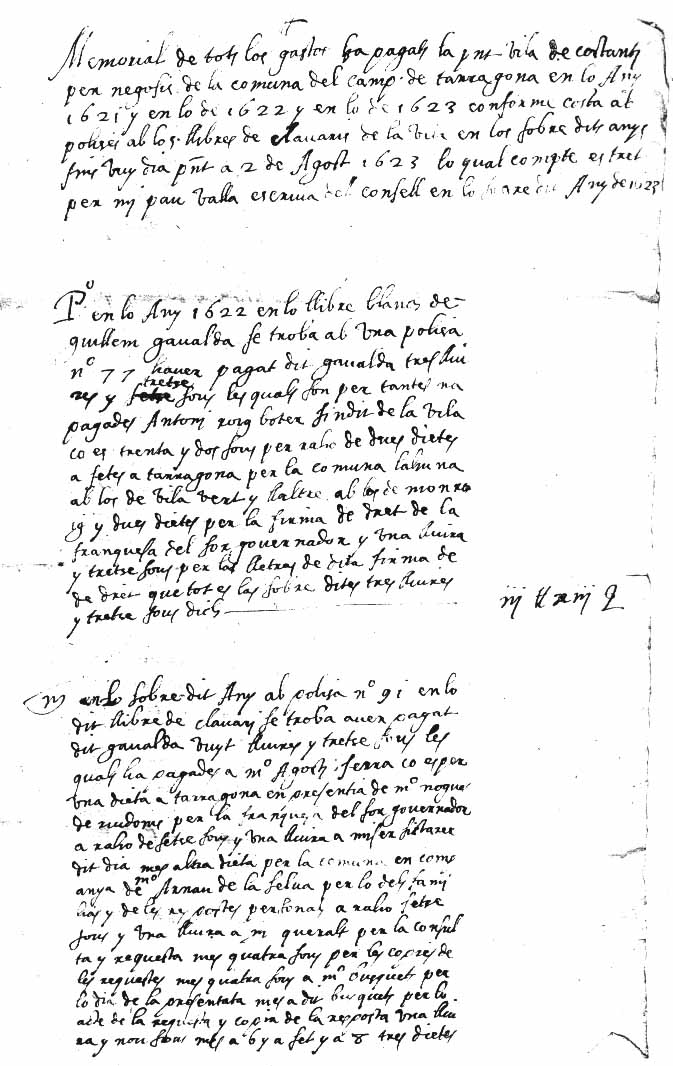 Memorial de tots los gastos ha pagats la pnt vila de costanti
per negosis de la comuna del camp de tarragona en lo Any
1621 y en lo de 1622 y en lo de 1623 conforme costa ab
polises ab los llibres de clavaris de la vila en los sobre dits anys
fins vuy dia pnt a 2 de Agost 1623 lo qual compte es tret
per mi pau valla escriva del consell en lo sobre dit Any de 1623
Po en lo Any 1622 en lo llibre blanch de
guillem gavalda se troba ab una polisa
no 77 haver pagat dit gavalda tres lliu
res y tretse sous les quals son per tantes na
pagades Antoni roig boter sindic de la vila
co es trenta y dos sous per raho de dues dietes
a fetes a tarragona per la comuna la huna
ab los de vila vert y llaltre ab los de monro
ig y dues dietes per la firma de dret de la
franquesa del sor governador y una lliura
y tretse sous per las lletras de dita firma de
de dret que tot es las sobre dites tres lliures
y tretse sous dich
iij ll xiij
en lo sobre dit Any ab polisa no 91 en lo
dit llibre de clavari se troba aver pagat
dit gavalda vuyt lliures y tretse sous les
quals ha pagades a mo Agosti serra co es per
una dieta a tarragona en presentia de mo nogue
de riudoms per la franquesa del sor governador
a raho de setse sous y una lliura a miser
dit dia mes altra dieta per la comuna en comp
anya de mo Arnau de la selva per lo dels
y de les respostes a raho setse
sous y una lliura a m queralt per la consul
ta y requesta mes quatra sous per les copies de
les requestes mes quatra sous a mo busquets per
lo dia de la presentata mes a dit busquets per lo
acte de la requesta y copia de la resposta una lliu
ra y nou sous mes a 6 y a set y a 8 tres dietes